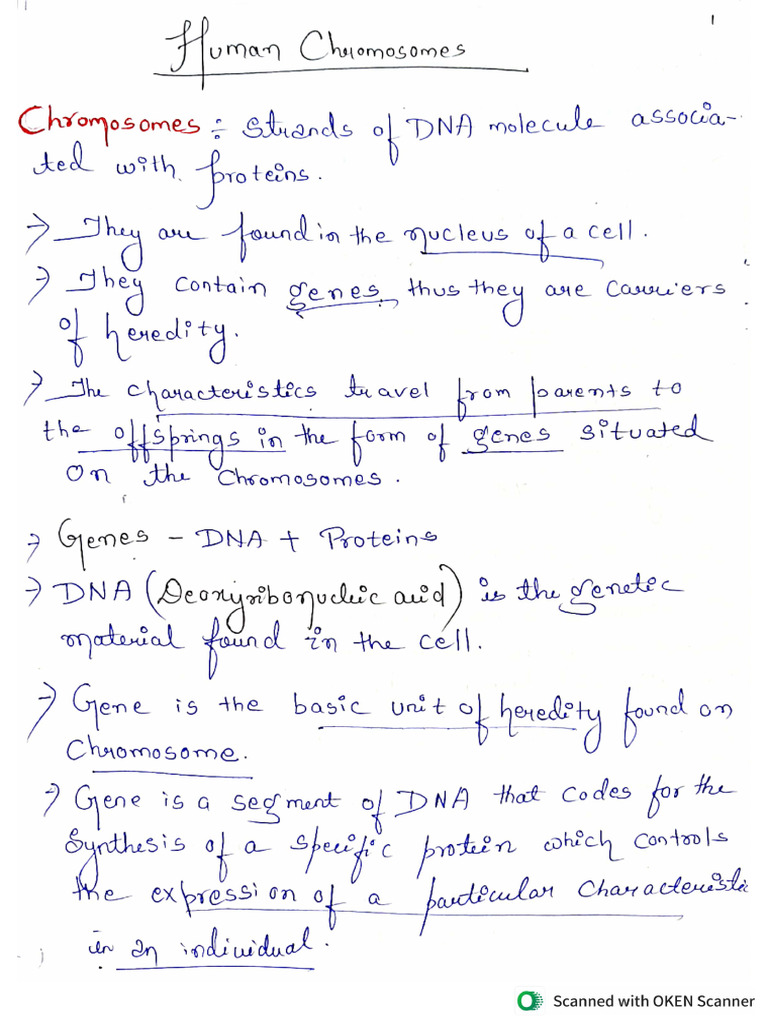 1
Human Chromosomes
Chromosomes :- Strands of DNA molecule associa-
ted with proteins.
→ They are found in the nucleus of a cell.
→ They contain genes, thus they are carriers
of heredity.
→ The characteristics travel from parents to
the offsprings in the form of genes situated
on the chromosomes.
→ Genes - DNA + Proteins
→ DNA (Deoxyribonucleic acid) is the genetic
material found in the cell.
→ Gene is the basic unit of heredity found on
chromosome.
→ Gene is a segment of DNA that codes for the
synthesis of a specific protein which controls
the expression of a particular characteristic
in an individual.
Scanned with OKEN Scanner